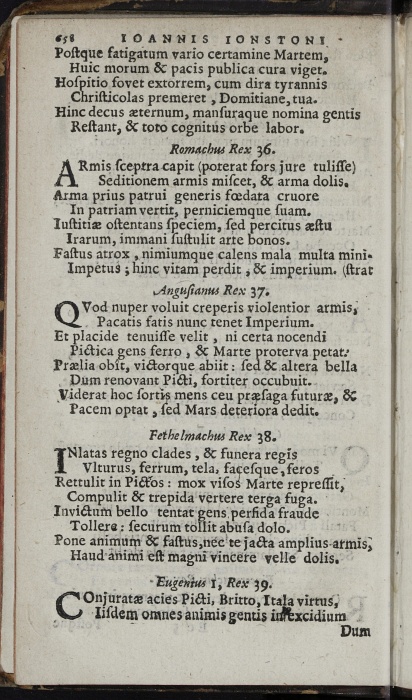 658 IOANNIS IONSTONI
Poſtque fatigatum vario certamine Martem,
Huic morum & pacis publica cura viget.
Hoſpitio fovet extorrem, cum dira tyrannis
Chriſticolas premeret, Domitiane, tua.
Hinc decus æternum, manſuraque nomina gentis
Reſtant, & toto cognitus orbe labor.
Romachus Rex 36.
ARmis ſceptra capit (poterat fors jure tuliſſe)
Seditionem armis miſcet, & arma dolis.
Arma prius patrui generis fœdata cruore
In patriam vertit, perniciemque ſuam.
Iuſtitiæ oſtentans ſpeciem, ſed percitus æſtu
Irarum, immani ſuſtulit arte bonos.
Faſtus atrox, nimiumque calens mala multa mini-
Impetus; hinc vitam perdit, & imperium. (ſtrat
Anguſianus Rex 37.
QVod nuper voluit creperis violentior armis,
Pacatis fatis nunc tenet Imperium.
Et placide tenuiſſe velit, ni certa nocendi
Pictica gens ferro, & Marte proterva petat.
Prælia obit, victorque abiit: ſed & altera bella
Dum renovant Picti, fortiter occubuit.
Viderat hoc ſortis mens ceu præſaga futuræ, &
Pacem optat, ſed Mars deteriora dedit.
Fethelmachus Rex 38.
INlatas regno clades, & funera regis
Vlturus, ferrum, tela, faceſque, feros
Rettulit in Pictos: mox viſos Marte repreſſit,
Compulit & trepida vertere terga fuga.
Invictum bello tentat gens perfida fraude
Tollere: ſecurum tollit abuſa dolo.
Pone animum & faſtus, nec te jacta amplius armis,
Haud animi eſt magni vincere velle dolis.
Eugenius 1, Rex 39.
COnjuratæ acies Picti, Britto, Itala virtus,
Iiſdem omnes animis gentis in excidium
Dum